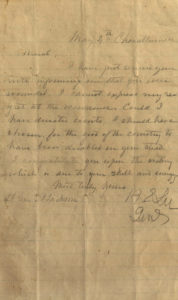 May 4th Chancellorsville
General,
I have just received your
note informing me that you were
wounded. I cannot express my re
gret at the occurrence. Could I
have directed events, I should have
chosen, for the good of the country, to
have been disabled in your stead.
I congratulate you upon the victory
which is due to your skill and energy
Most truly yours
R E Lee
Genl